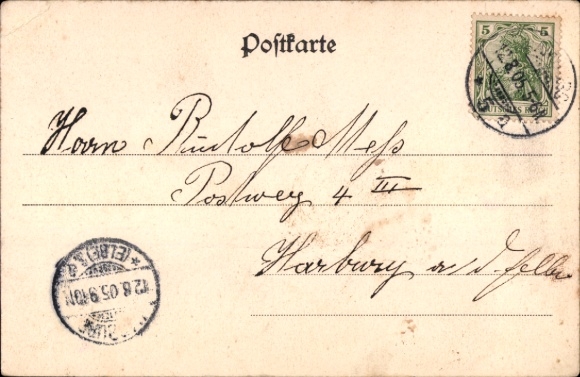 Postkarte
5 5
Herrn Rudolf Mess
Postweg 4 III
Harburg a/d. Elbe
(ELBE)
12.8.05.9-10N